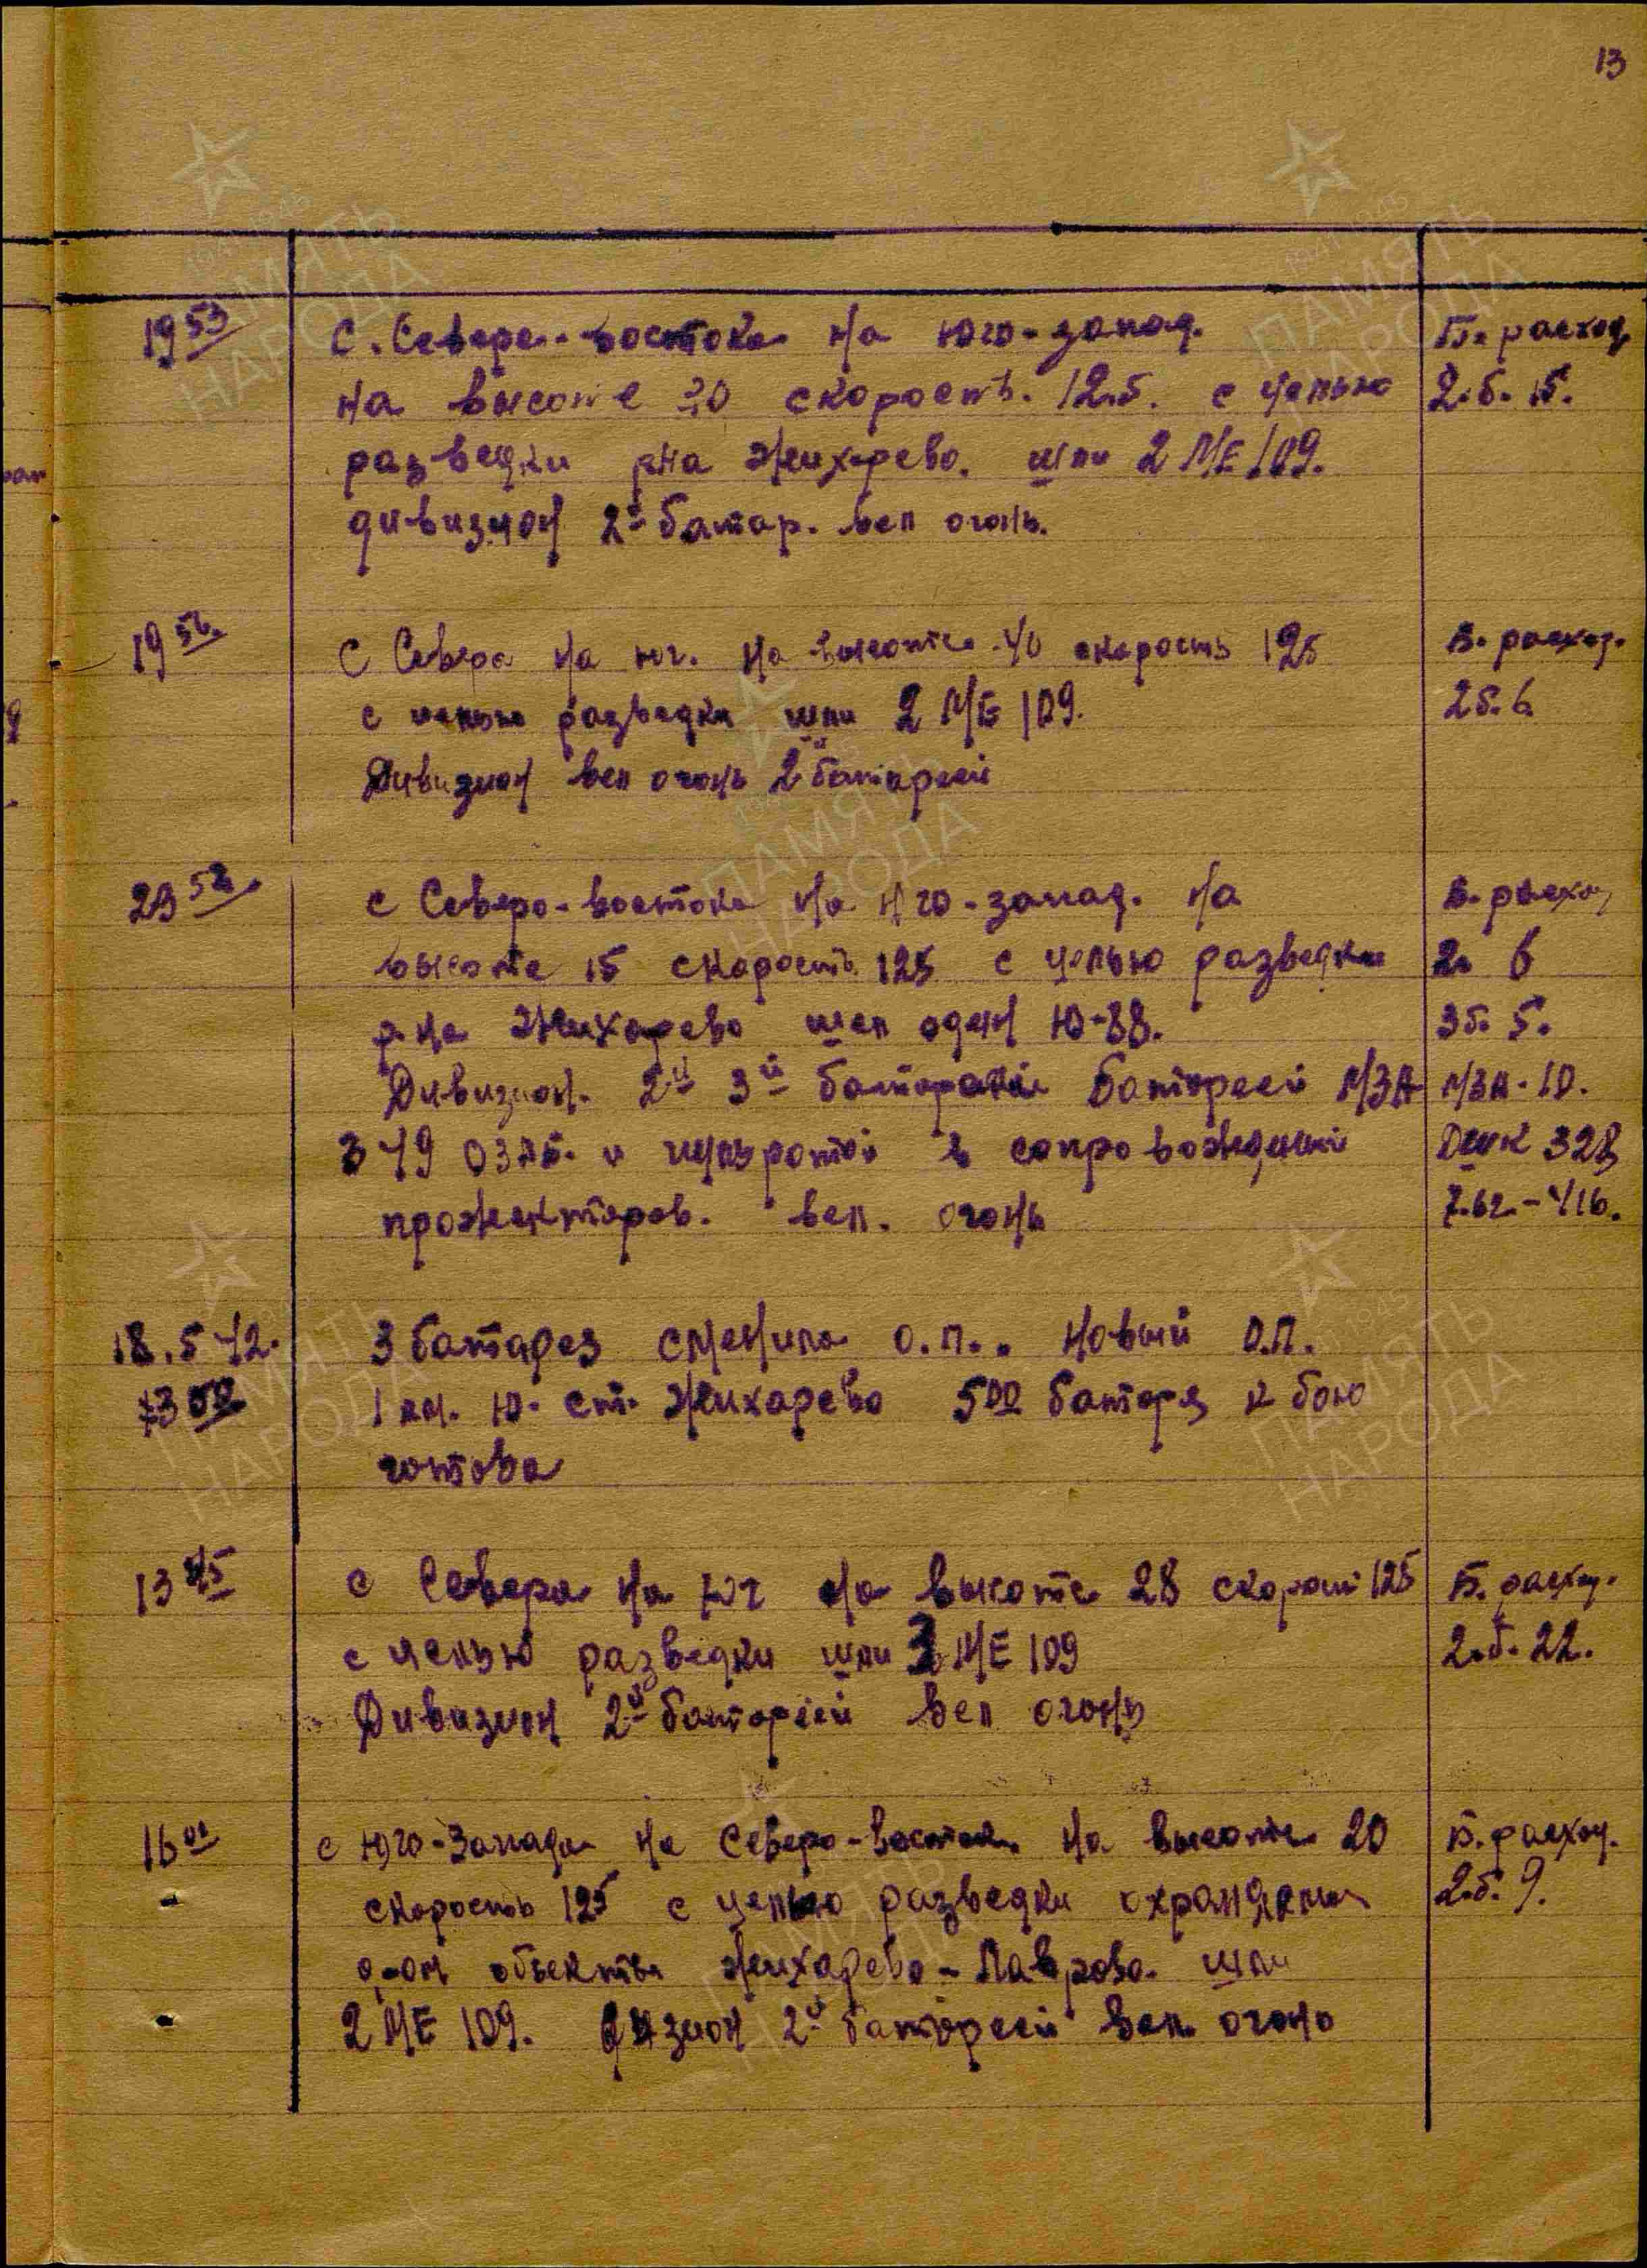 13
19 53
С. Северо-востока на юго-запад.
на высоте 30 скорость 125. с целью
разведки рна Жихарево. шли 2 МЕ 109.
дивизион 2й батар. вел огонь.
Б. расход
2.б. 15.
19
С Севера на юг. на высоте 40 скорость 125
с целью разведки шли 2 МЕ 109.
Дивизион вел огонь 2й батареей
Б. расход.
2б. 6.
23
с Северо-востока на юго-запад. на
высоте 15 скорость 125 с целью разведки
р-на Жихарево шел один Ю-88.
Дивизион. 2й 3й батареей батареей МЗА
349 ОЗАД. и пульротой в сопровождении
прожекторов. вел. огонь
Б. расход
2. 6
3б. 5.
МЗА-10.
ДШК 328
7.62.-416.
18.5 42.
3 батарея сменила о.п.. новый О.П.
1 км. Ю. ст. Жихарево 5 00 батарея к бою
готова
13 45
с Севера на юг на высоте 28 скорост 125
с целью разведки шли МЕ 109
Дивизион 2й батареей вел огонь
Б. расход.
2.б. 22.
16 01
с юго-Запада на Северо-восток на высоте 20
скорость 125 с целью разведки
объекта Жихарево-Лаврово. шли
2 МЕ 109. 2й батареей вел огонь
Б. расход.
2.б. 9.
1941 1945
ПАМЯТЬ
НАРОДА